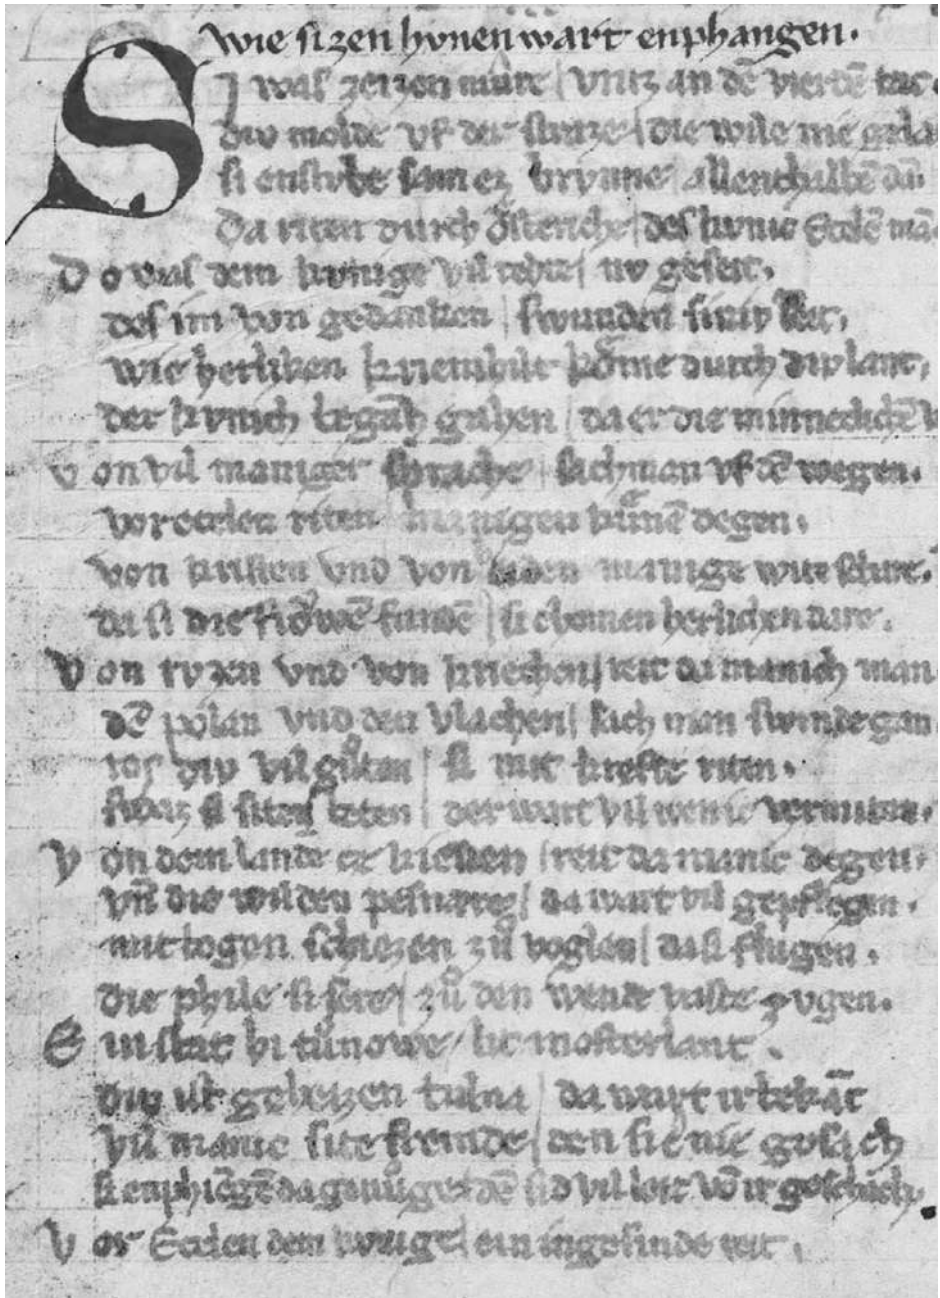 wie si zen hvnen wart enphangen.
SI was zeizen mure | vntz an dē vierdē tac.
div molde vf der straze | die wile nie gela
si enstvbe sam ez brvnne | allenthalbē dā.
Da riten durch ôsteriche | des kvnic Etzelē mā
Do was dem kvnige vil rehte | nv geseit.
des im von gedanken | swunden siniv leit.
wie herlichen kriemhilt kôme durch div lant.
der kvnich begā gahen | da er die minneclichē
Von vil maniger sprache | sach man vf dē wegen.
vor ecelen riten manigen kûnē degen.
von kristen vnd von heiden manige wite schare.
da si die frôwē fundē | si chomen herlichen dare.
Von rvzen vnd von kriechen | reit da manich man
dē polan vnd den vlachen | sach man swinde gan
ros div vil gůten | si mit krefte riten.
swaz si siten heten | der wart vil wenic vermiten.
Von dem lande ze kiewen | reit da manic degen.
vn̄ die wilden pesnære | da wart vil gepflegen.
mit bogen schiezen zů voglen | da si flugen.
die phile si sere | zů den wende vaste zvgen.
Ein stat bi tůnowe | lit in osterlant.
div ist geheizen tulna | da wart ir bekāt
vil manic site fremde | den si e nie gesach
si enphiēgē da genůge | dē sid vil leit vō ir geschach.
Vor Ecelen dem kvnige | ein ingesinde reit.